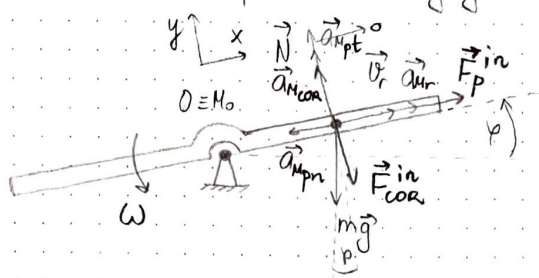 y
x
N⃗
a⃗_Mpt → 0
a⃗_Mcor
v⃗_r
a⃗_Mr
F⃗_p^in
O ≡ M₀
φ
a⃗_Mpn
F⃗_cor^in
ω
mg⃗